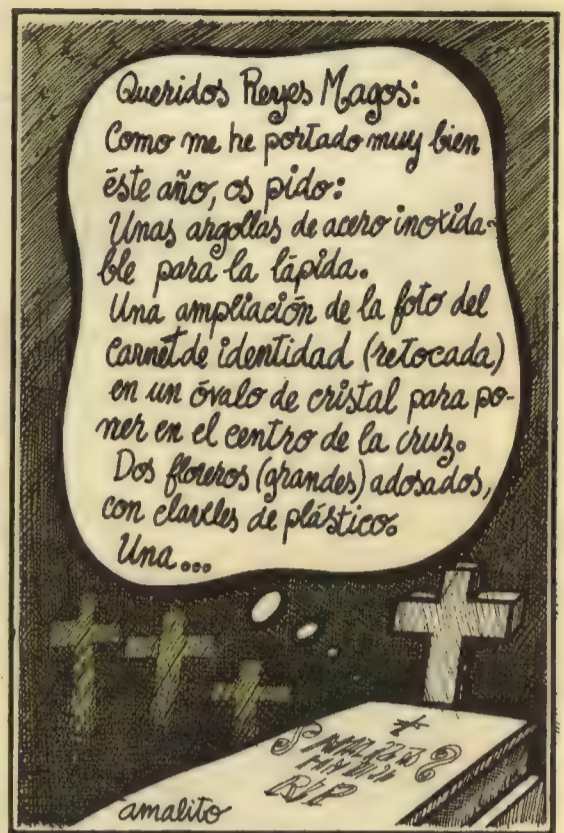 Queridos Reyes Magos:
Como me he portado muy bien
éste año, os pido:
Unas argollas de acero inoxida-
ble para la lápida.
Una ampliación de la foto del
carnet de identidad (retocada)
en un óvalo de cristal para po-
ner en el centro de la cruz.
Dos floreros (grandes) adosados,
con claveles de plástico.
Una...
RIP
amalito